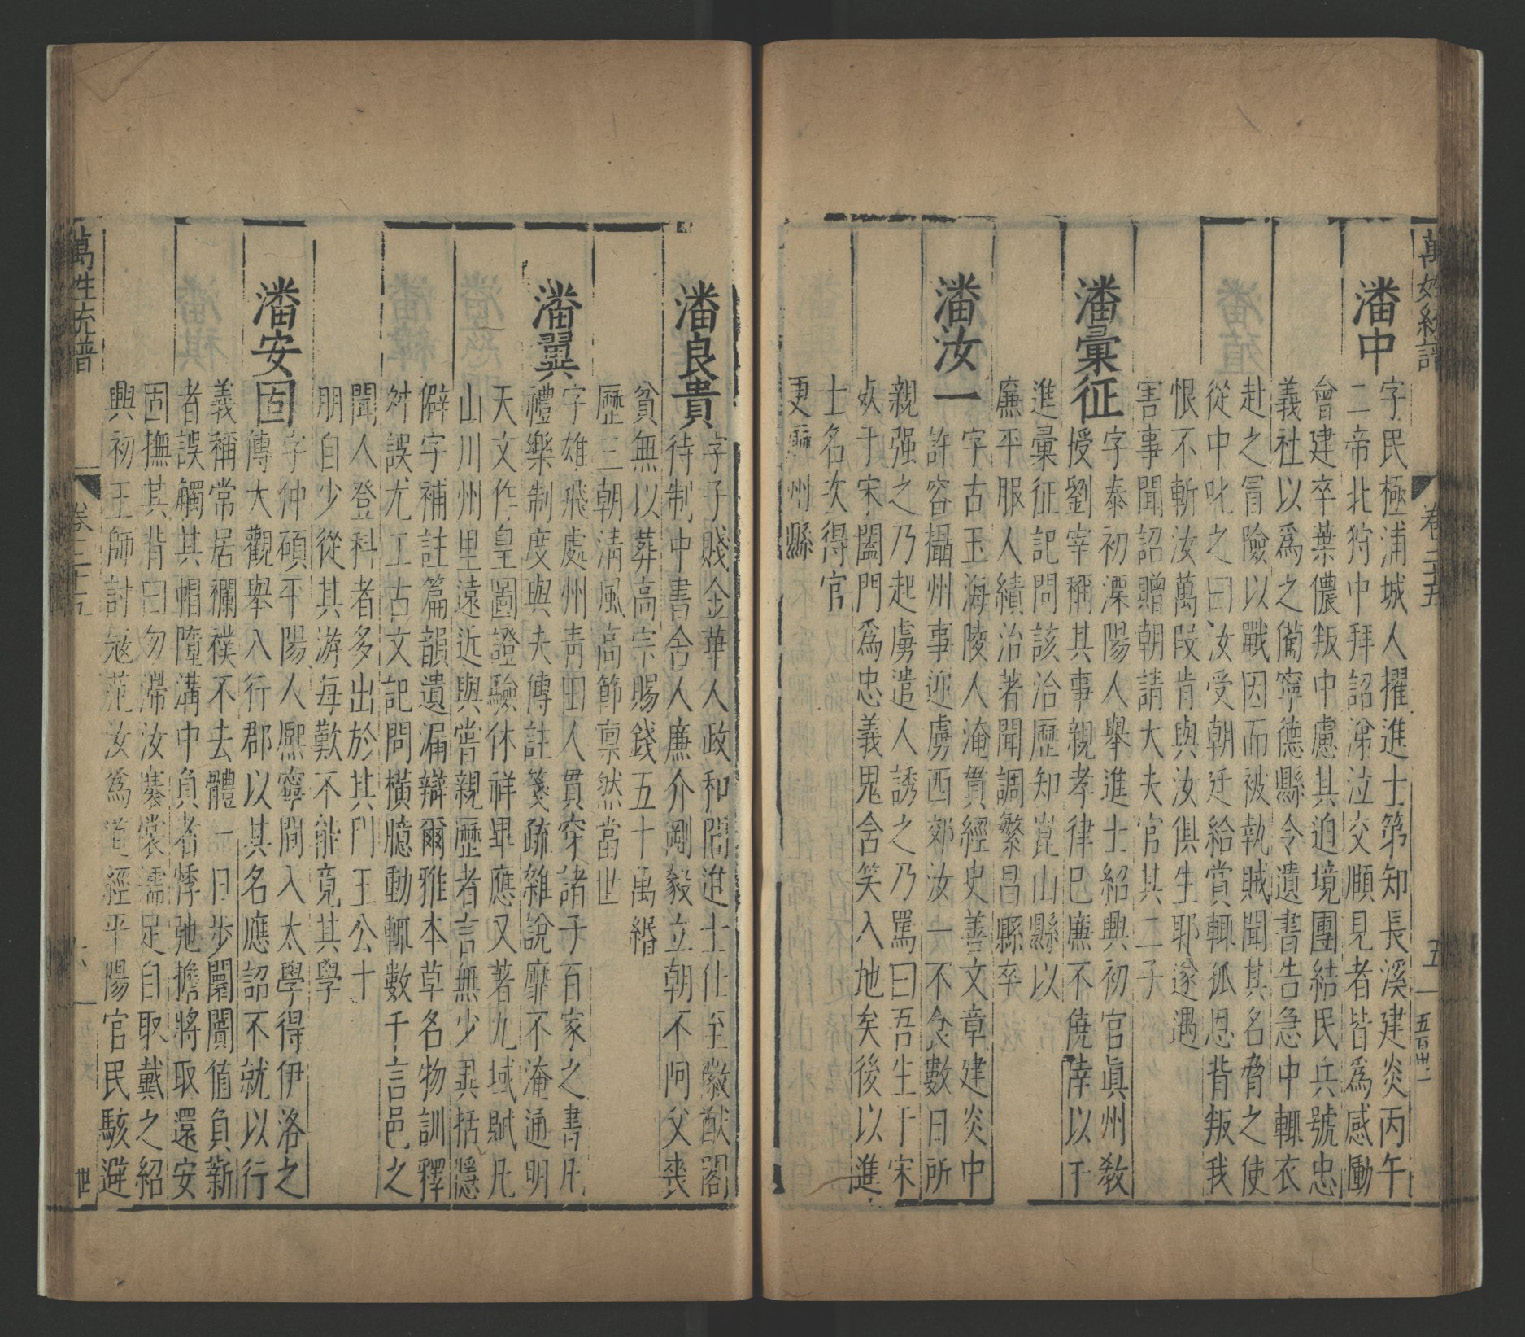 萬姓統譜 卷二十五 五
潘中 字民極浦城人擢進士第知長溪建炎丙午
二帝北狩中拜詔涕泣交順見者皆爲感慟
曾建卒葉儂叛中慮其迫境團結民兵號忠
義社以爲之備寧德縣令遺書告急中輒衣
赴之冒險以戰因而被執賊聞其名脅之使
從中叱之曰汝受朝廷給賞輒孤恩背叛我
恨不斬汝萬段肯與汝俱生耶遂遇
害事聞詔贈朝請大夫官其二子
潘彙征 字泰初溧陽人舉進士紹興初官眞州敎
授劉宰稱其事親孝律已廉不僥倖以于
進彙征記問該洽歷知崑山縣以
廉平服人績治著聞調繁昌縣卒
潘汝一 字古玉海陵人淹貫經史善文章建炎中
許容攝州事迎虜西郊汝一不食數日所
親强之乃起虜遣人誘之乃罵曰吾生于宋
妖于宋闔門爲忠義鬼含笑入地矣後以進
士名次得官
更𭅺州縣
潘良貴 字子賤金華人政和間進士仕至徽猷閣
待制中書舍人廉介剛毅立朝不阿父喪
貧無以葬高宗賜錢五十萬緡
歷三朝淸風高節禀然當世
潘翼 字雄飛處州靑田人貫穿諸子百家之書凡
禮樂制度與夫傳註箋疏雜說靡不淹通明
天文作皇圖證驗休祥畢應又著九域賦凡
山川州里遠近與嘗親歷者言無少異括隱
僻字補註篇韻遺漏辯爾雅本草名物訓釋
舛誤尤工古文記問橫臆動輒數千言邑之
聞人登科者多出於其門王公十
朋自少從其游每歎不能竟其學
潘安固 字仲碩平陽人熙寧間入太學得伊洛之
傳大觀舉入行郡以其名應詔不就以行
義稱常居襴襆不去體一日步闤闠値負薪
者誤觸其帽墮溝中負者悸弛擔將取還安
固撫其背曰勿滯汝褰裳濡足自取戴之紹
興初王師討冦范汝爲道經平陽官民駭避
萬姓統譜 卷二十五 六